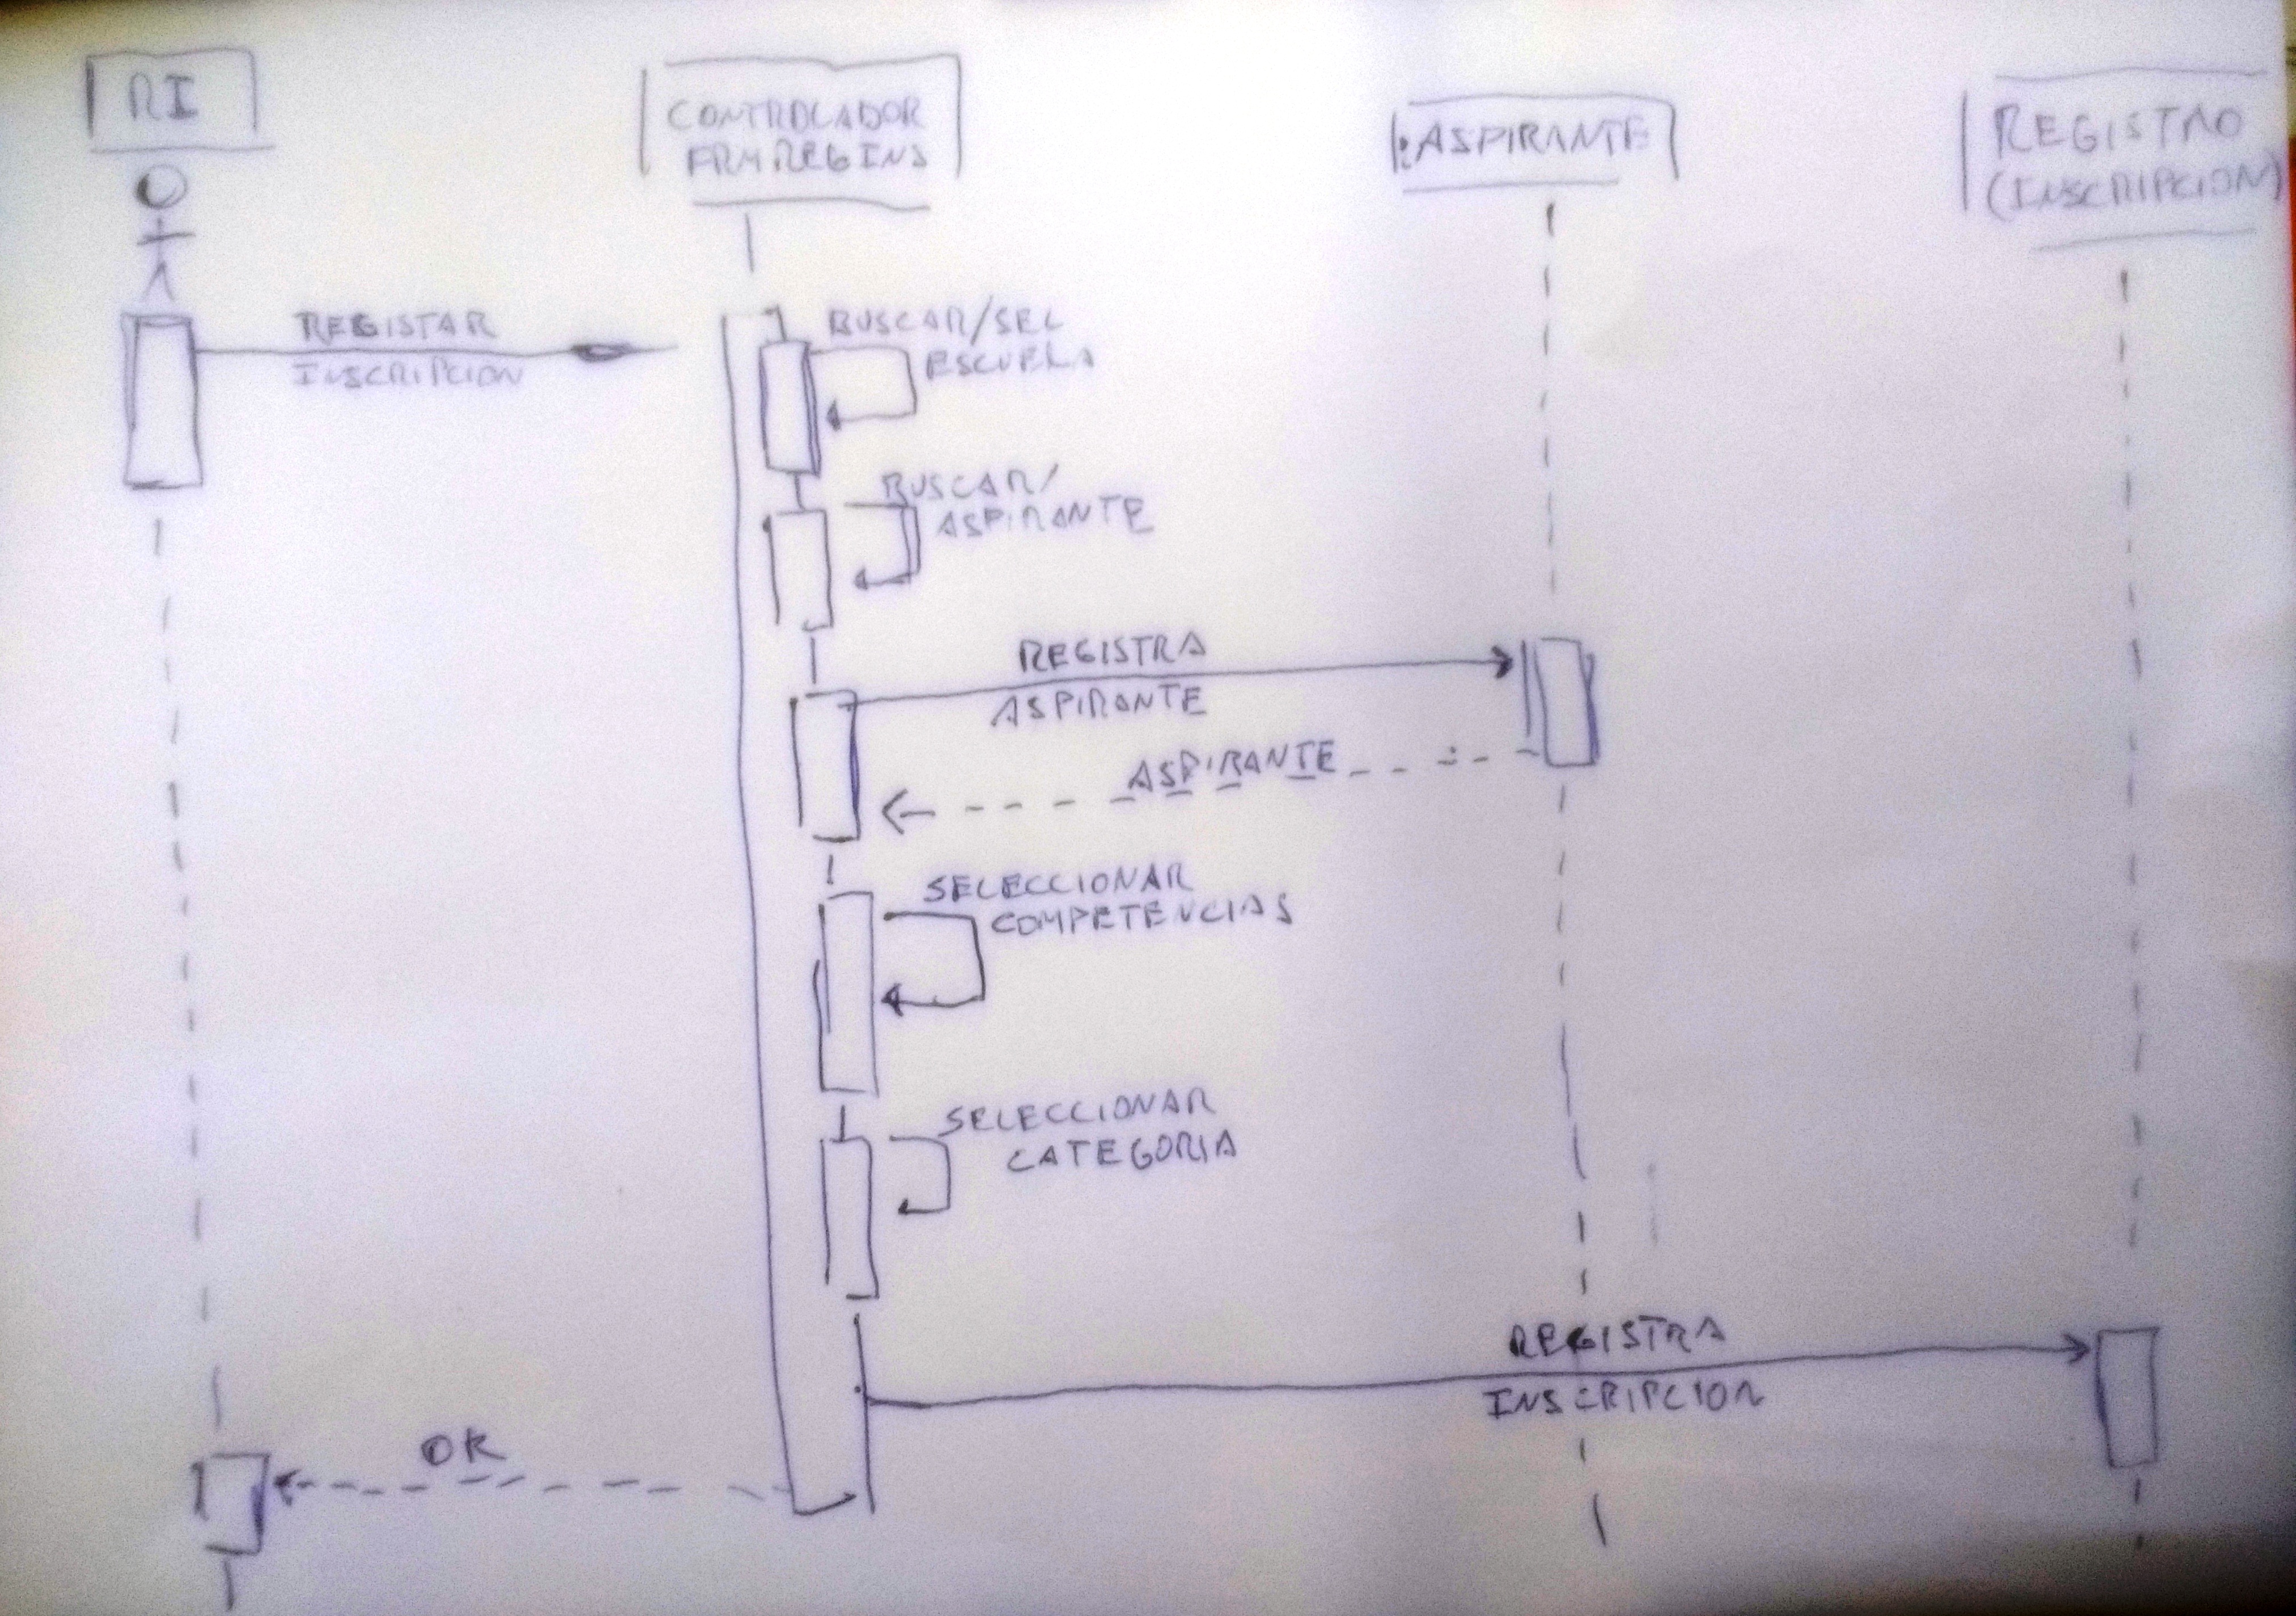 RI
CONTROLADOR
FRMREGINS
:ASPIRANTE
REGISTRO
(INSCRIPCION)
REGISTAR
INSCRIPCION
BUSCAR/SEL
ESCUELA
BUSCAR/
ASPIRANTE
REGISTRA
ASPIRANTE
ASPIRANTE
SELECCIONAR
COMPETENCIAS
SELECCIONAR
CATEGORIA
REGISTRA
INSCRIPCION
OK